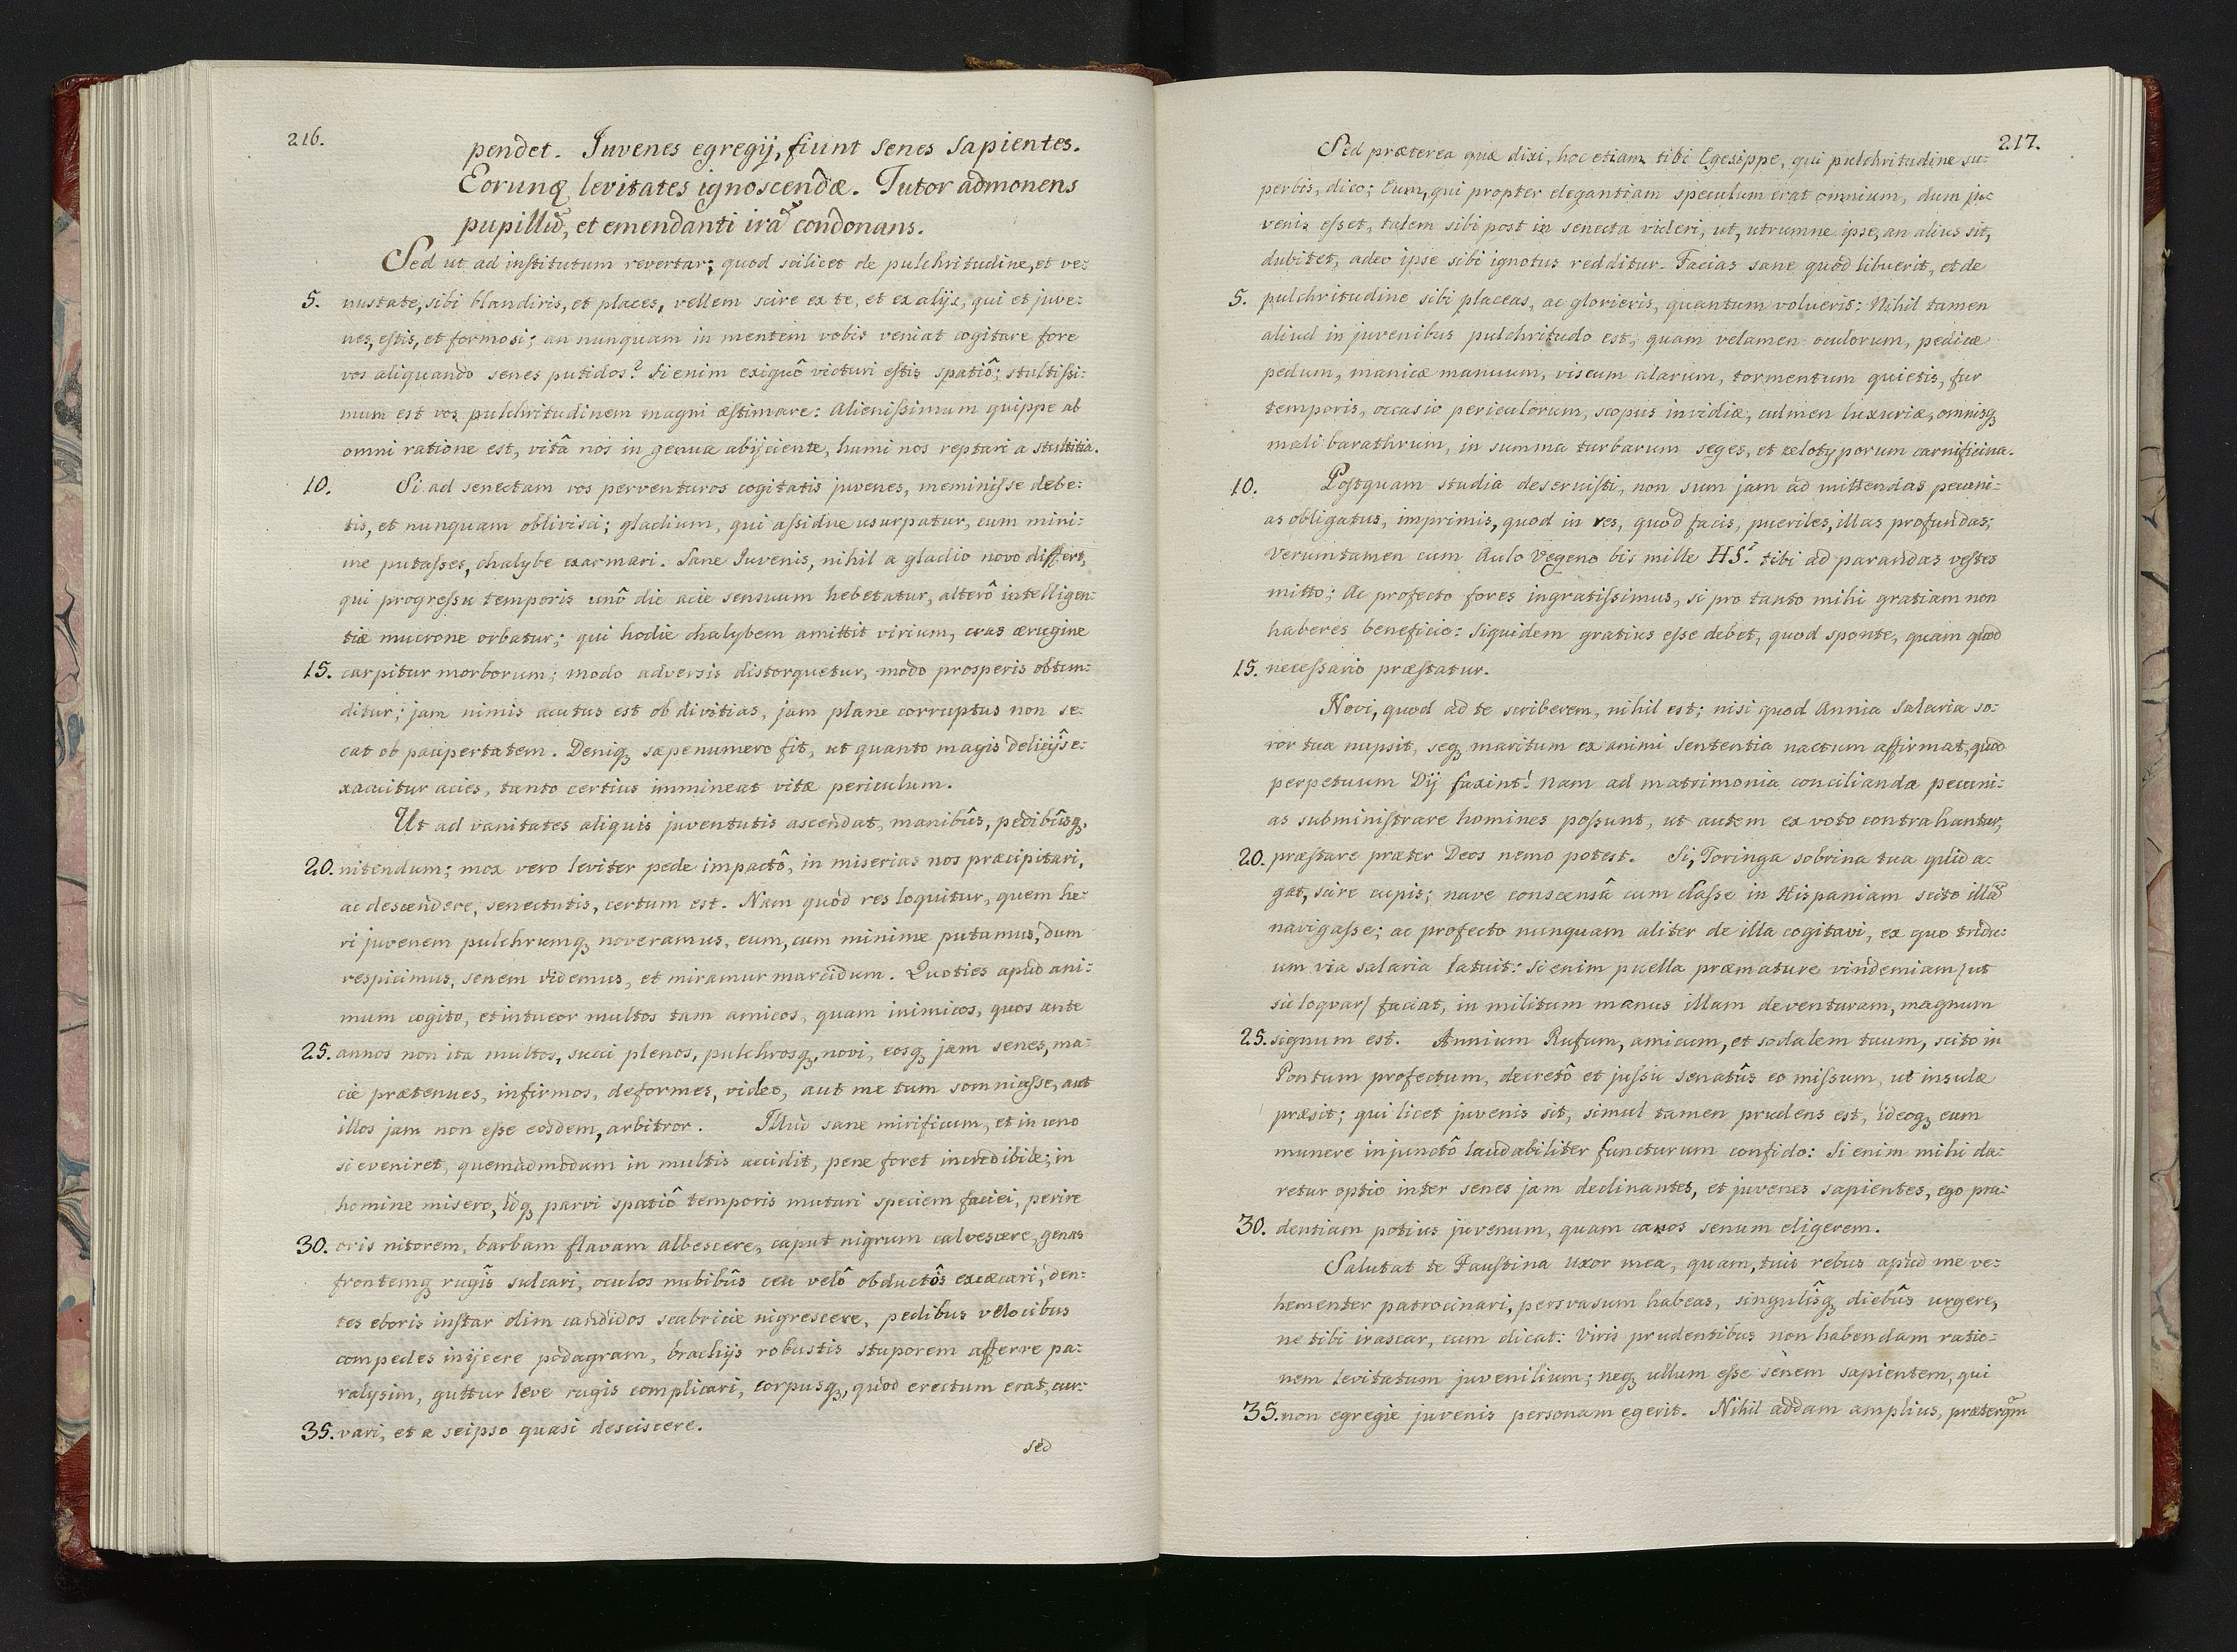 216.
pendet. Iuvenes egregij, fiunt senes sapientes.
Eorunq̃ levitates ignoscendæ. Tutor admonens
pupillũ, et emendanti irã condonans.
Sed ut ad institutum revertar; quod scilicet de pulchritudine, et ve:
5. nustate, sibi blandiris, et places, vellem scire ex te, et ex alijs, qui et juve:
nes, estis, et formosi; an nunquam in mentem vobis veniat cogitare fore
vos aliquando senes putidos? Si enim exiguô victuri estis spatiô; stultissi:
mum est vos pulchritudinem magni æstimare: Alienissimum quippe ab
omni ratione est, vitâ nos in genua abijciente, humi nos reptari a stultitia.
10. Si ad senectam vos perventuros cogitatis juvenes, meminisse debe:
tis, et nunquam oblivisci; gladium, qui assidue usurpatur, cum mini:
me putasses, chalybe exarmari. Sane Iuvenis, nihil a gladio novo differt,
qui progressu temporis unô die acie sensuum hebetatur, alterô intelligen:
tiæ mucrone orbatur; qui hodie chalybem amittit virium, cras ærugine
15. carpitur morborum; modo adversis distorquetur, modo prosperis obtun:
ditur; jam nimis acutus est ob divitias, jam plane corruptus non se:
cat ob paupertatem. Deniq, sæpenumero fit, ut quanto magis delicijs e:
xacuitur acies, tanto certius immineat vitæ periculum.
Ut ad vanitates aliquis juventutis ascendat, manibûs, pedibûsq,
20. nitendum; mox vero leviter pede impactô, in miserias nos præcipitari,
ac descendere, senectutis, certum est. Nam quod res loquitur, quem he:
ri juvenem pulchrumq, noveramus, eum, cum minime putamus, dum
respicimus, senem videmus, et miramur marcidum. Quoties apud ani:
mum cogito, et intueor multos tam amicos, quam inimicos, quos ante
25. annos non ita multos, succi plenos, pulchrosq, novi, eosq, jam senes, ma:
cie prætenues, infirmos, deformes, video, aut me tum somniasse, aut
illos jam non esse eosdem, arbitror. Illud sane mirificum, et in uno
si eveniret, quemadmodum in multis accidit, pene foret incredibile; in
homine misero, idq, parvi spatiô temporis mutari speciem faciei, perire
30. oris nitorem, barbam flavam albescere, caput nigrum calvescere, genas
frontemq, rugîs sulcari, oculos nubibûs ceu velô obductôs excæcari, den:
tes eboris instar olim candidos scabricie nigrescere, pedibus velocibus
compedes inijcere podagram, brachijs robustis stuporem afferre pa:
ralysim, guttur leve rugis complicari, corpusq, quod erectum erat, cur:
35. vari, et a seipso quasi desciscere.
sed
217.
Sed præterea quæ dixi, hoc etiam tibi Egesippe, qui pulchritudine su:
perbis, dico; Eum, qui propter elegantiam speculum erat omnium, dum ju:
venis esset, talem sibi post in senecta videri, ut, utrumne ipse, an alius sit,
dubitet, adeo ipse sibi ignotus redditur. Facias sane quod libuerit, et de
5. pulchritudine sibi placeas, ac glorieris, quantum volueris: Nihil tamen
aliud in juvenibus pulchritudo est, quam velamen oculorum, pedicæ
pedum, manicæ manuum, viscum alarum, tormentum quietis, fur
temporis, occasio periculorum, scopus invidiæ, culmen luxuriæ, omnisq,
mali barathrum, in summa turbarum seges, et zelotyporum carnificina.
10. Postquam studia deseruisti, non sum jam ad mittendas pecuni:
as obligatus, imprimis, quod in res, quod facis, pueriles, illas profundas;
Verumtamen cum Aulo Vegeno bis mille HS. tibi ad parandas vestes
mitto; Ac profecto fores ingratissimus, si pro tanto mihi gratiam non
haberes beneficio: Siquidem gratius esse debet, quod sponte, quam quod
15. necessario præstatur.
Novi, quod ad te scriberem, nihil est; nisi quod Annia Salaria so:
ror tua nupsit, seq, maritum ex animi sententia nactum affirmat, quod
perpetuum Dij faxint! Nam ad matrimonia concilianda pecuni:
as subministrare homines possunt, ut autem ex voto contrahantur,
20. præstare præter Deos nemo potest. Si, Toringa sobrina tua quid a:
gat, scire cupis; nave conscensâ cum classe in Hispaniam scito illã
navigasse; ac profecto nunquam aliter de illa cogitavi, ex quo tridu:
um via salaria latuit: Si enim puella præmature vindemiam/ut
sic loquar/ faciat, in militum manus illam deventuram, magnum
25. signum est. Annium Rufum, amicum, et sodalem tuum, scito in
Pontum profectum, decretô et jussu senatûs eo missum, ut insulæ
præsit; qui licet juvenis sit, simul tamen prudens est, ideoq, eum
munere injunctô laudabiliter functurum confido: Si enim mihi da:
retur optio inter senes jam declinantes, et juvenes sapientes, ego pru:
30. dentiam potius juvenum, quam canos senum eligerem.
Salutat te Faustina uxor mea, quam, tuis rebus apud me ve:
hementer patrocinari, persvasum habeas, singulîsq, diebûs urgere,
ne tibi irascar, cum dicat: Viris prudentibus non habendam ratio:
nem levitatum juvenilium; neq, ullum esse senem sapientem, qui
35. non egregie juvenis personam egerit. Nihil addam amplius, præterqm̃